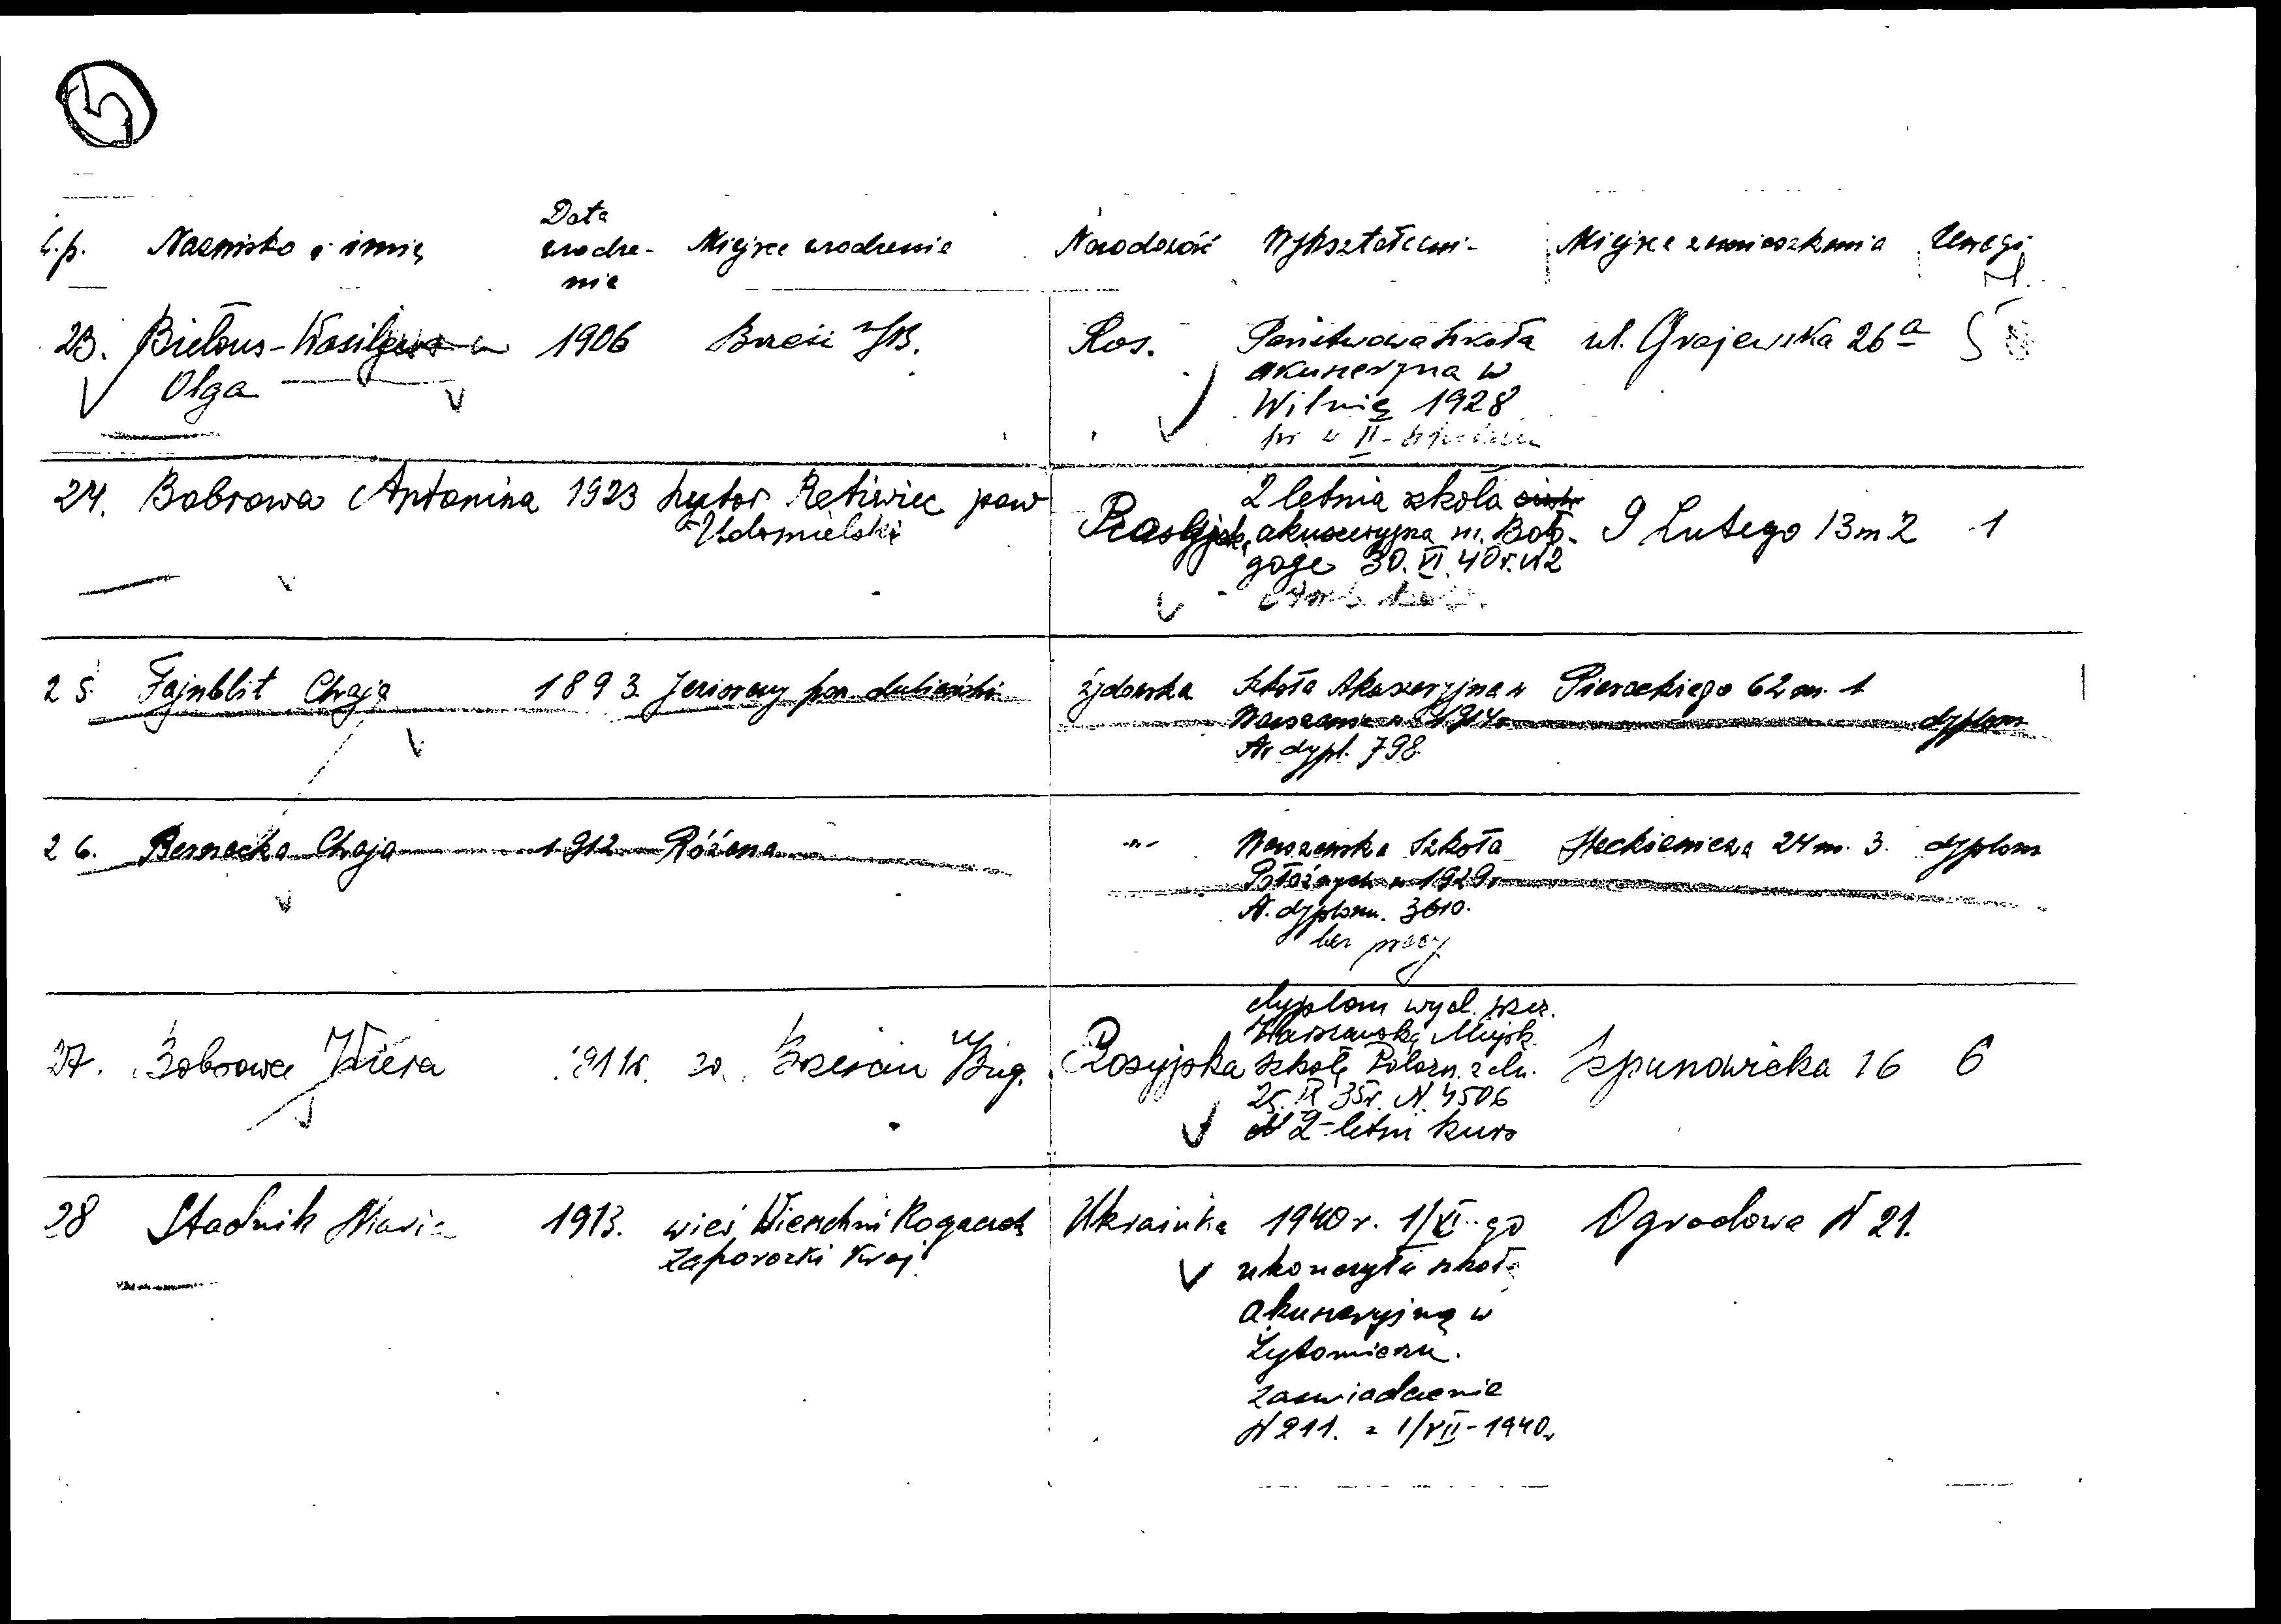 5
L.p. Nazwisko i imię Data urodze- nie Miejsce urodzenie Narodowość Wykształceni- Miejsce zamieszkania Uwagi
23. Biełous-Wasiljewa 1906 Brześć n/B. Ros. Państwowa szkoła ul. Grajewska 26a 5
Olga akuszeryjna w
Wilnie 1928
pr w II-
24. Bobrowa Antonina 1923 hutor Retiwiec pow 2 letnia szkoła
Udomielski Rosyjska akuszeryjna m. Boło- 9 Lutego 13 m 2 1
goje 30.VI.40r. N2
25. Fajnblit Chaja 1893. Jeziorany pow. dubieński żydowska Szkoła Akuszeryjna w Pierackiego 62 m. 1
Warszawie w 1914 dyplom
Nr dypl. 798
26. Chaja 1912 Różana -"- Warszawska Szkoła 24 m. 3. dyplom
Położnych w 1929r
N. dyplom. 3610.
bez pracy
dyplom wyd. przez.
Warszawską Miejsk.
27. Bobrowa Wiera 1911r. w Brześciu n/Bug. Rosyjska szkołę Położn. z dn. Szpunowicka 16 6
25.IX 35r. N. 4506
2-letni kurs
28 Stadnik Maria 1913. wieś Wierchni Rogaczek Ukrainka 1940 r. 1/VI-go Ogrodowa N 21.
Zaporozki kraj ukonczyła szkołę
akuszeryjną w
Żytomierzu.
zaswiadczenie
N 211. z 1/VII-1940r